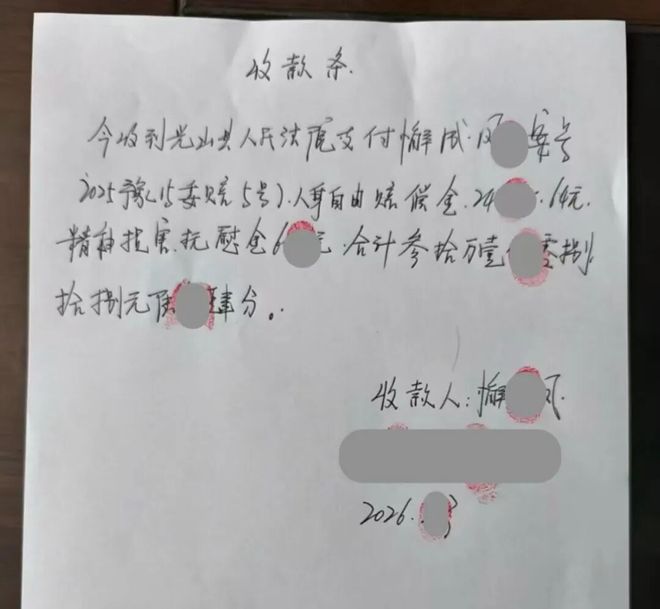 收款条.
今收到光山县人民法院支付懈成.风 案号
2025豫(15委赔5号).人身自由赔偿金.24 .64元.
精神损害.抚慰金6 元.合计叁拾万壹 零捌
拾捌元陆 肆分。
收款人: 懈 风.
2026. 3